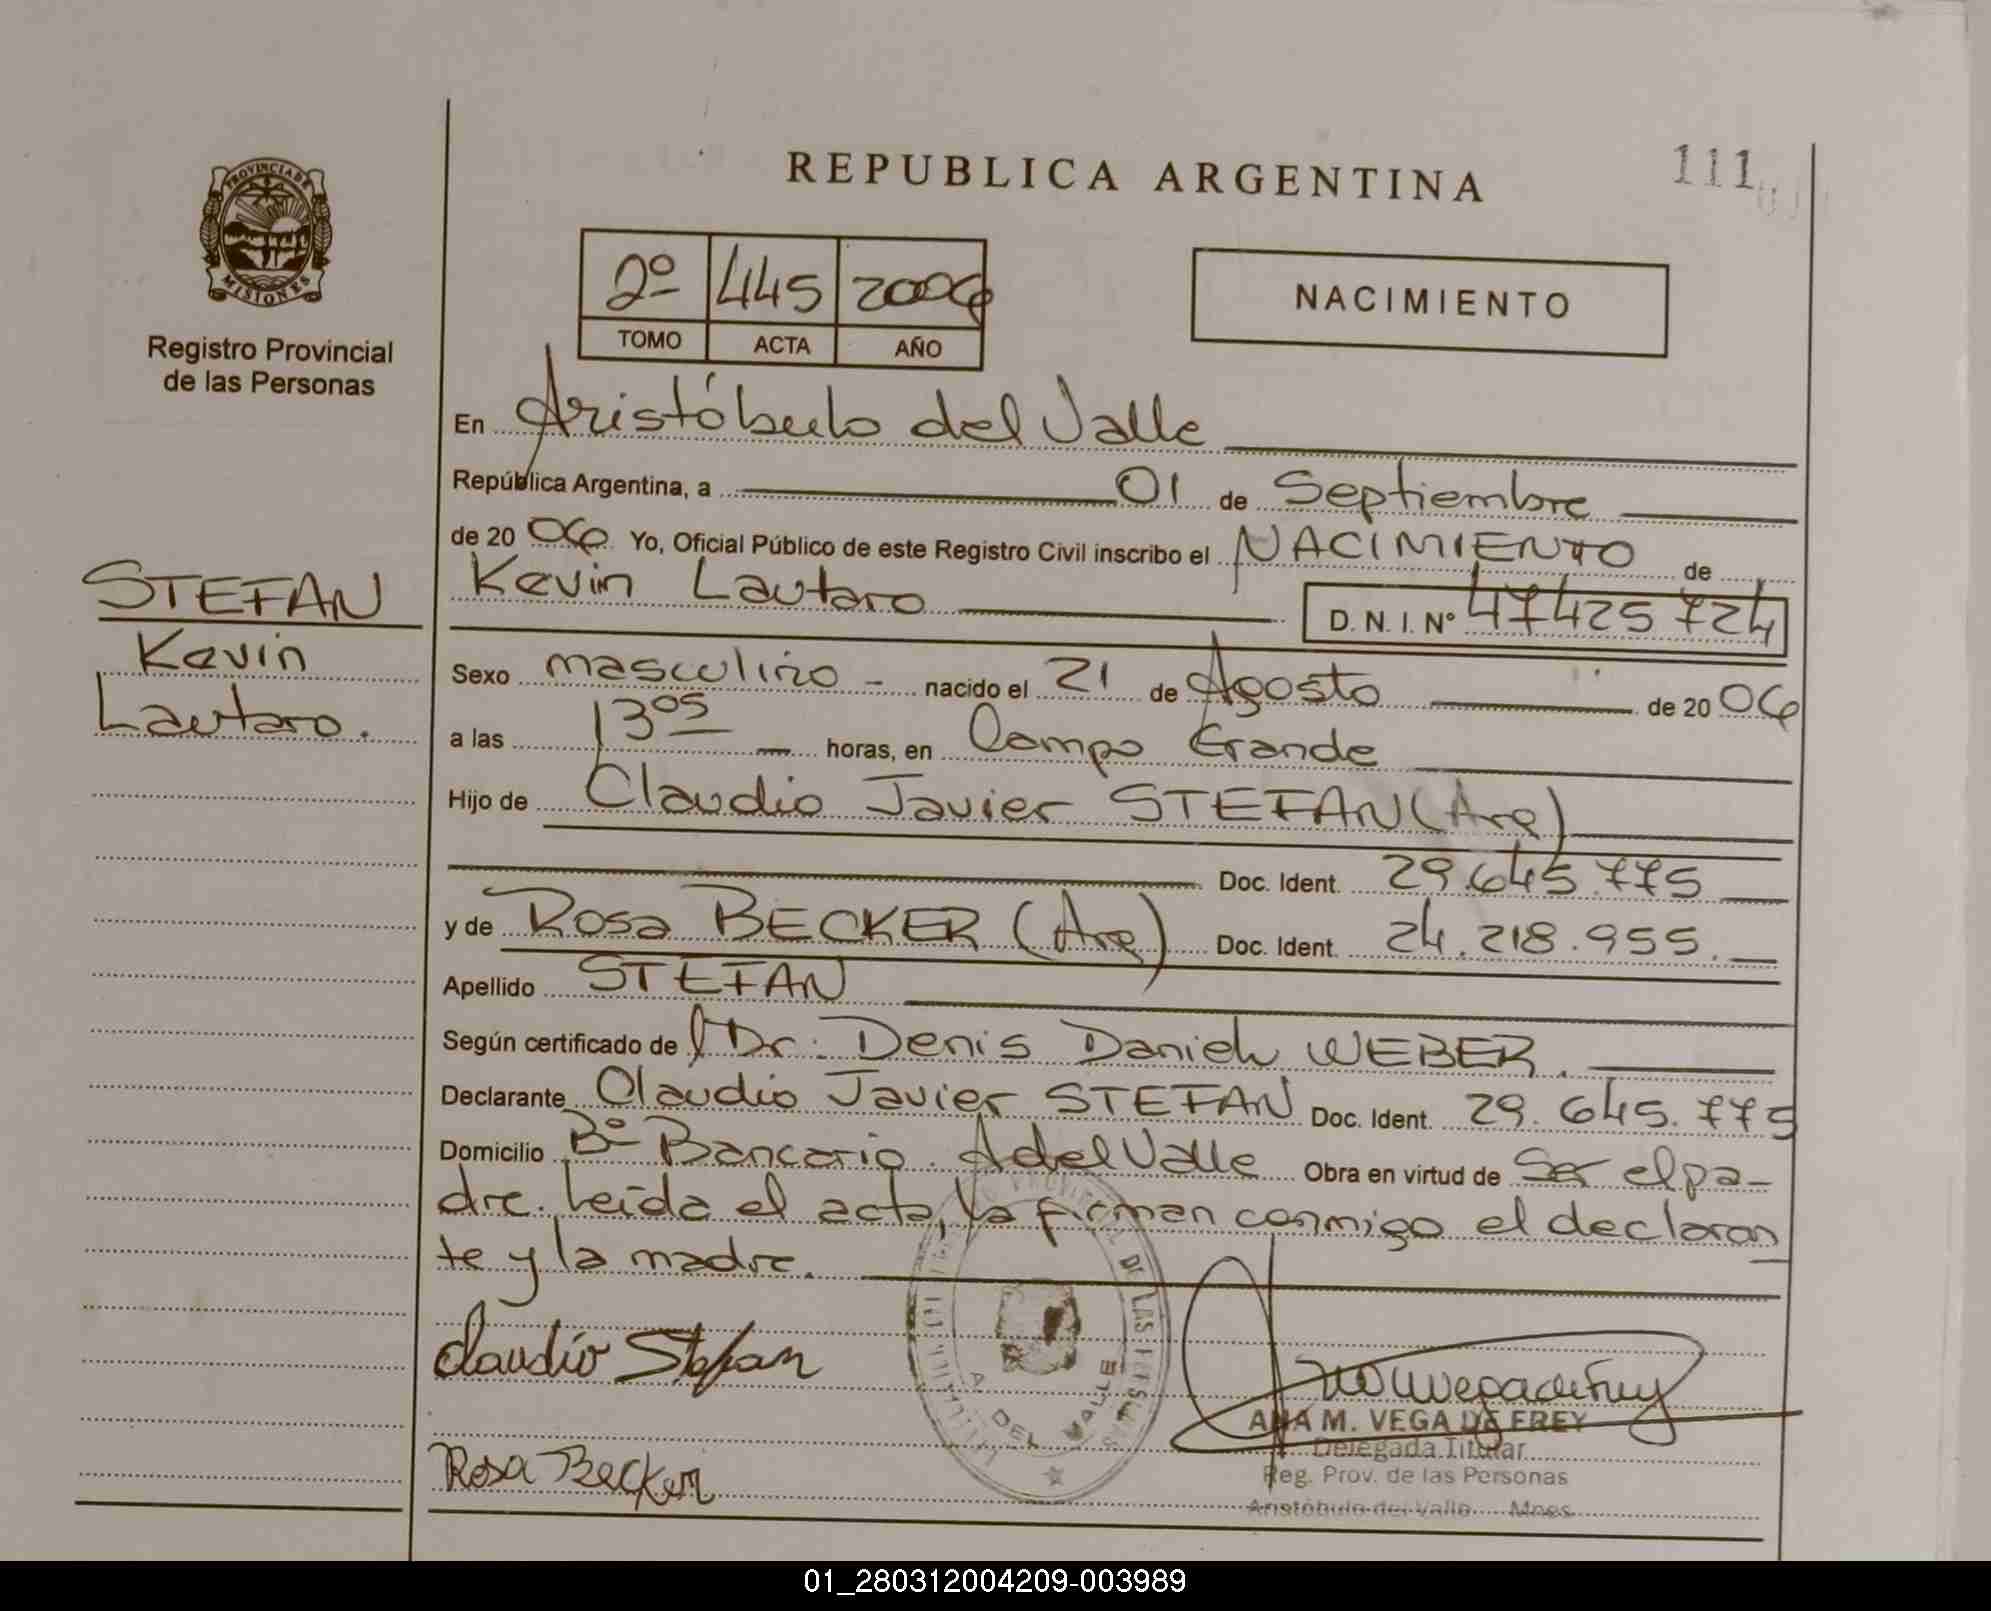 REPUBLICA ARGENTINA
111
PROVINCIA DE
MISIONES
Registro Provincial
de las Personas
2º 445 2006
TOMO ACTA AÑO
NACIMIENTO
En Aristóbulo del Valle
República Argentina, a 01 de Septiembre
de 20 06 Yo, Oficial Público de este Registro Civil inscribo el NACIMIENTO de
Kevin Lautaro
D. N. I. Nº 47425724
STEFAN
Kevin
Lautaro.
Sexo masculino - nacido el 21 de Agosto de 20 06
a las 13 05 horas, en Campo Grande
Hijo de Claudio Javier STEFAN (Arg)
Doc. Ident. 29.645.775
y de Rosa BECKER (Arg) Doc. Ident. 24.218.955.
Apellido STEFAN
Según certificado de Dr. Denis Daniel WEBER.
Declarante Claudio Javier STEFAN Doc. Ident. 29.645.775
Domicilio Bº Bancario. A del Valle Obra en virtud de Ser el pa-
dre. Leída el acta, la firman conmigo el declaran
te y la madre.
Claudio Stefan
DE LAS PERSONAS
A. DEL VALLE
ANA M. VEGA DE FREY
Delegada Titular
Reg. Prov. de las Personas
Aristóbulo del Valle Mnes
Rosa Becker
01_280312004209-003989